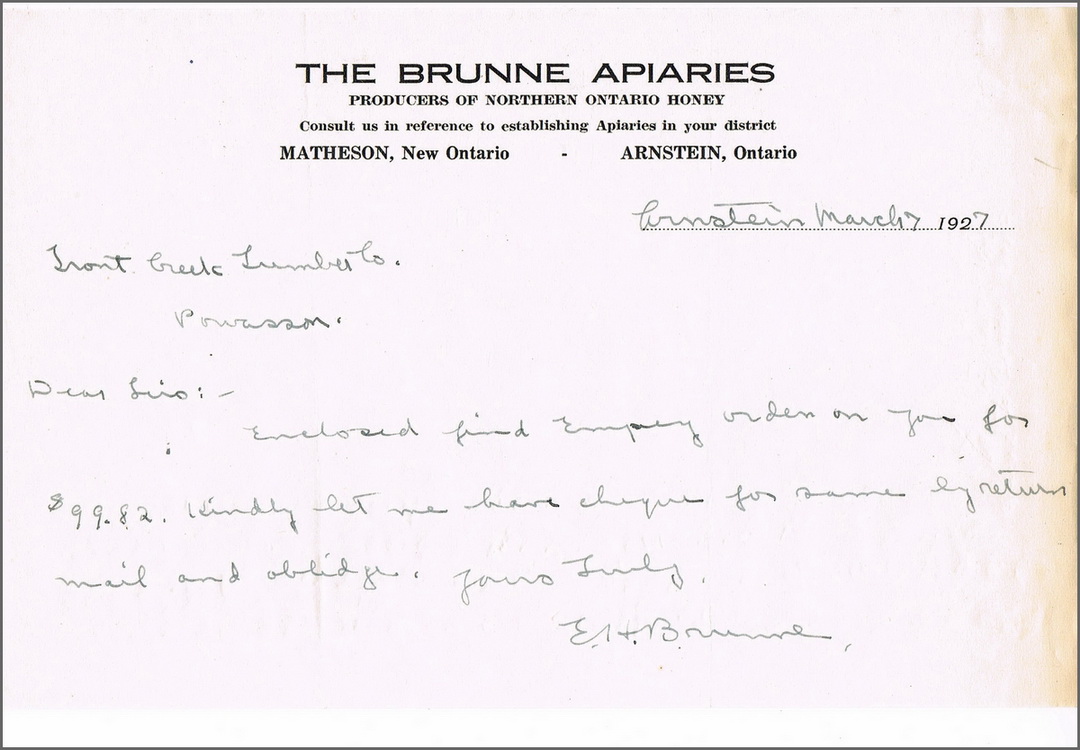 THE BRUNNE APIARIES
PRODUCERS OF NORTHERN ONTARIO HONEY
Consult us in reference to establishing Apiaries in your district
MATHESON, New Ontario - ARNSTEIN, Ontario
Arnstein March 7 1927
Trout Creek Lumber Co.
Powasson.
Dear Sirs:-
Enclosed find Empey order on you for
$99.82. Kindly let me have cheque for same by return
mail and oblidge. Yours Truly,
E.H. Brunne,